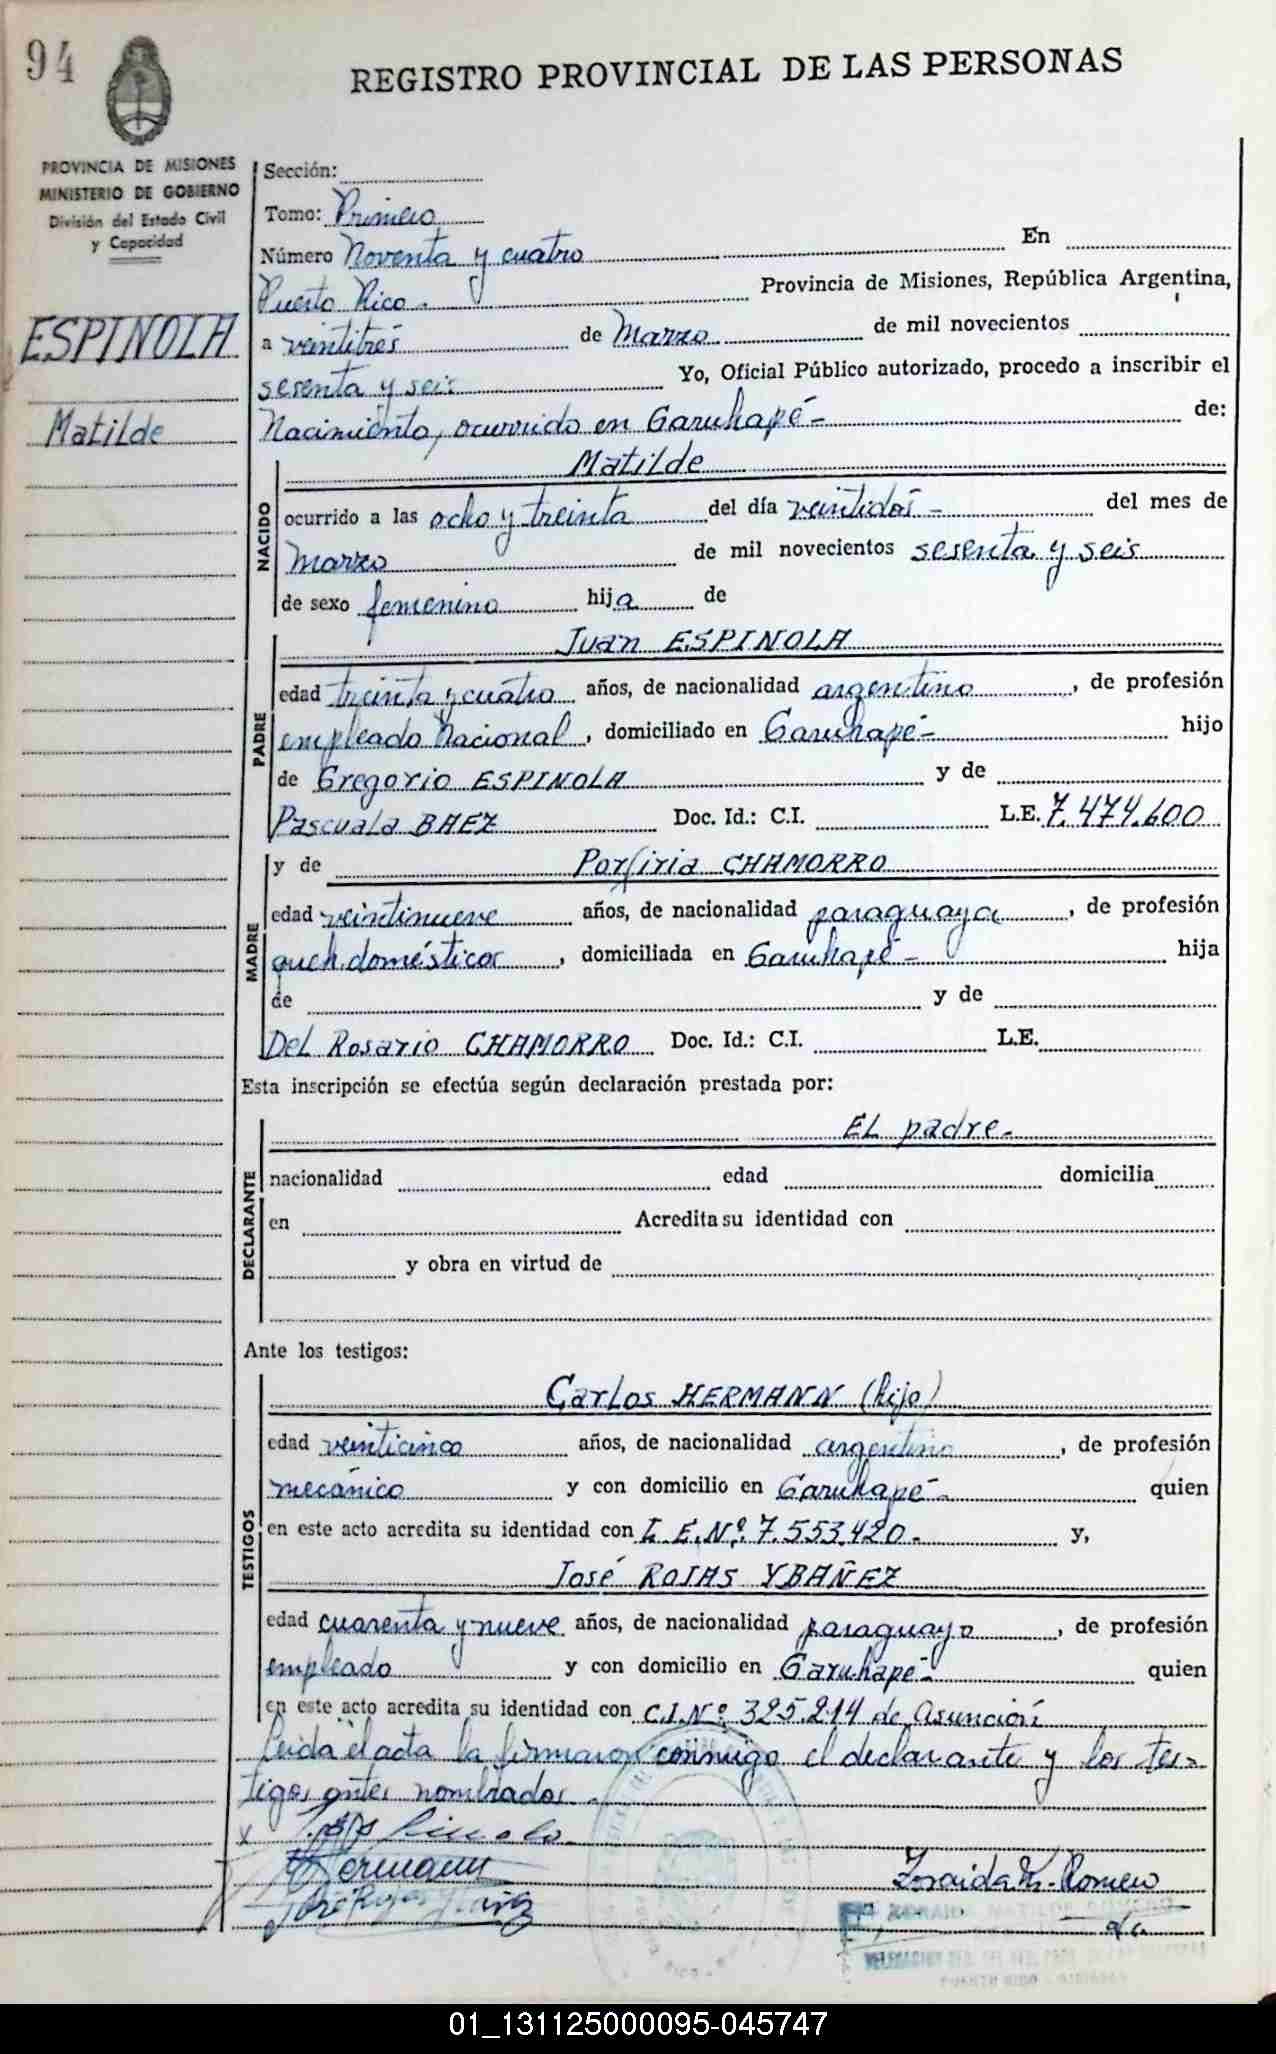 94
REGISTRO PROVINCIAL DE LAS PERSONAS
PROVINCIA DE MISIONES
MINISTERIO DE GOBIERNO
División del Estado Civil
y Capacidad
ESPINOLA
Matilde
Sección:
Tomo: Primero
Número Noventa y cuatro En
Puerto Rico - Provincia de Misiones, República Argentina,
a veintitrés de Marzo de mil novecientos
sesenta y seis Yo, Oficial Público autorizado, procedo a inscribir el
Nacimiento, ocurrido en Garuhapé - de:
NACIDO
Matilde
ocurrido a las ocho y treinta del día veintidós - del mes de
Marzo de mil novecientos sesenta y seis
de sexo femenino hija de
PADRE
Juan ESPINOLA
edad treinta y cuatro años, de nacionalidad argentino, de profesión
empleado Nacional, domiciliado en Garuhapé - hijo
de Gregorio ESPINOLA y de
Pascuala BAEZ Doc. Id.: C.I. L.E. 7.474.600
MADRE
y de Porfiria CHAMORRO
edad veintinueve años, de nacionalidad paraguaya, de profesión
queh. domésticos, domiciliada en Garuhapé - hija
de y de
Del Rosario CHAMORRO Doc. Id.: C.I. L.E.
Esta inscripción se efectúa según declaración prestada por:
DECLARANTE
EL padre -
nacionalidad edad domicilia
en Acredita su identidad con
y obra en virtud de
Ante los testigos:
TESTIGOS
Carlos HERMANN (hijo)
edad veinticinco años, de nacionalidad argentino, de profesión
mecánico y con domicilio en Garuhapé - quien
en este acto acredita su identidad con L.E. Nº: 7.553.420 - y,
José ROJAS YBAÑEZ
edad cuarenta y nueve años, de nacionalidad paraguayo, de profesión
empleado y con domicilio en Garuhapé - quien
en este acto acredita su identidad con C.I. Nº: 325.214 de Asunción
Leída el acta la firmaron conmigo el declarante y los tes-
tigos antes nombrados -
x
Hermann
José Rojas
Zoraida M. Romero
PUERTO RICO - MISIONES
01_131125000095-045747